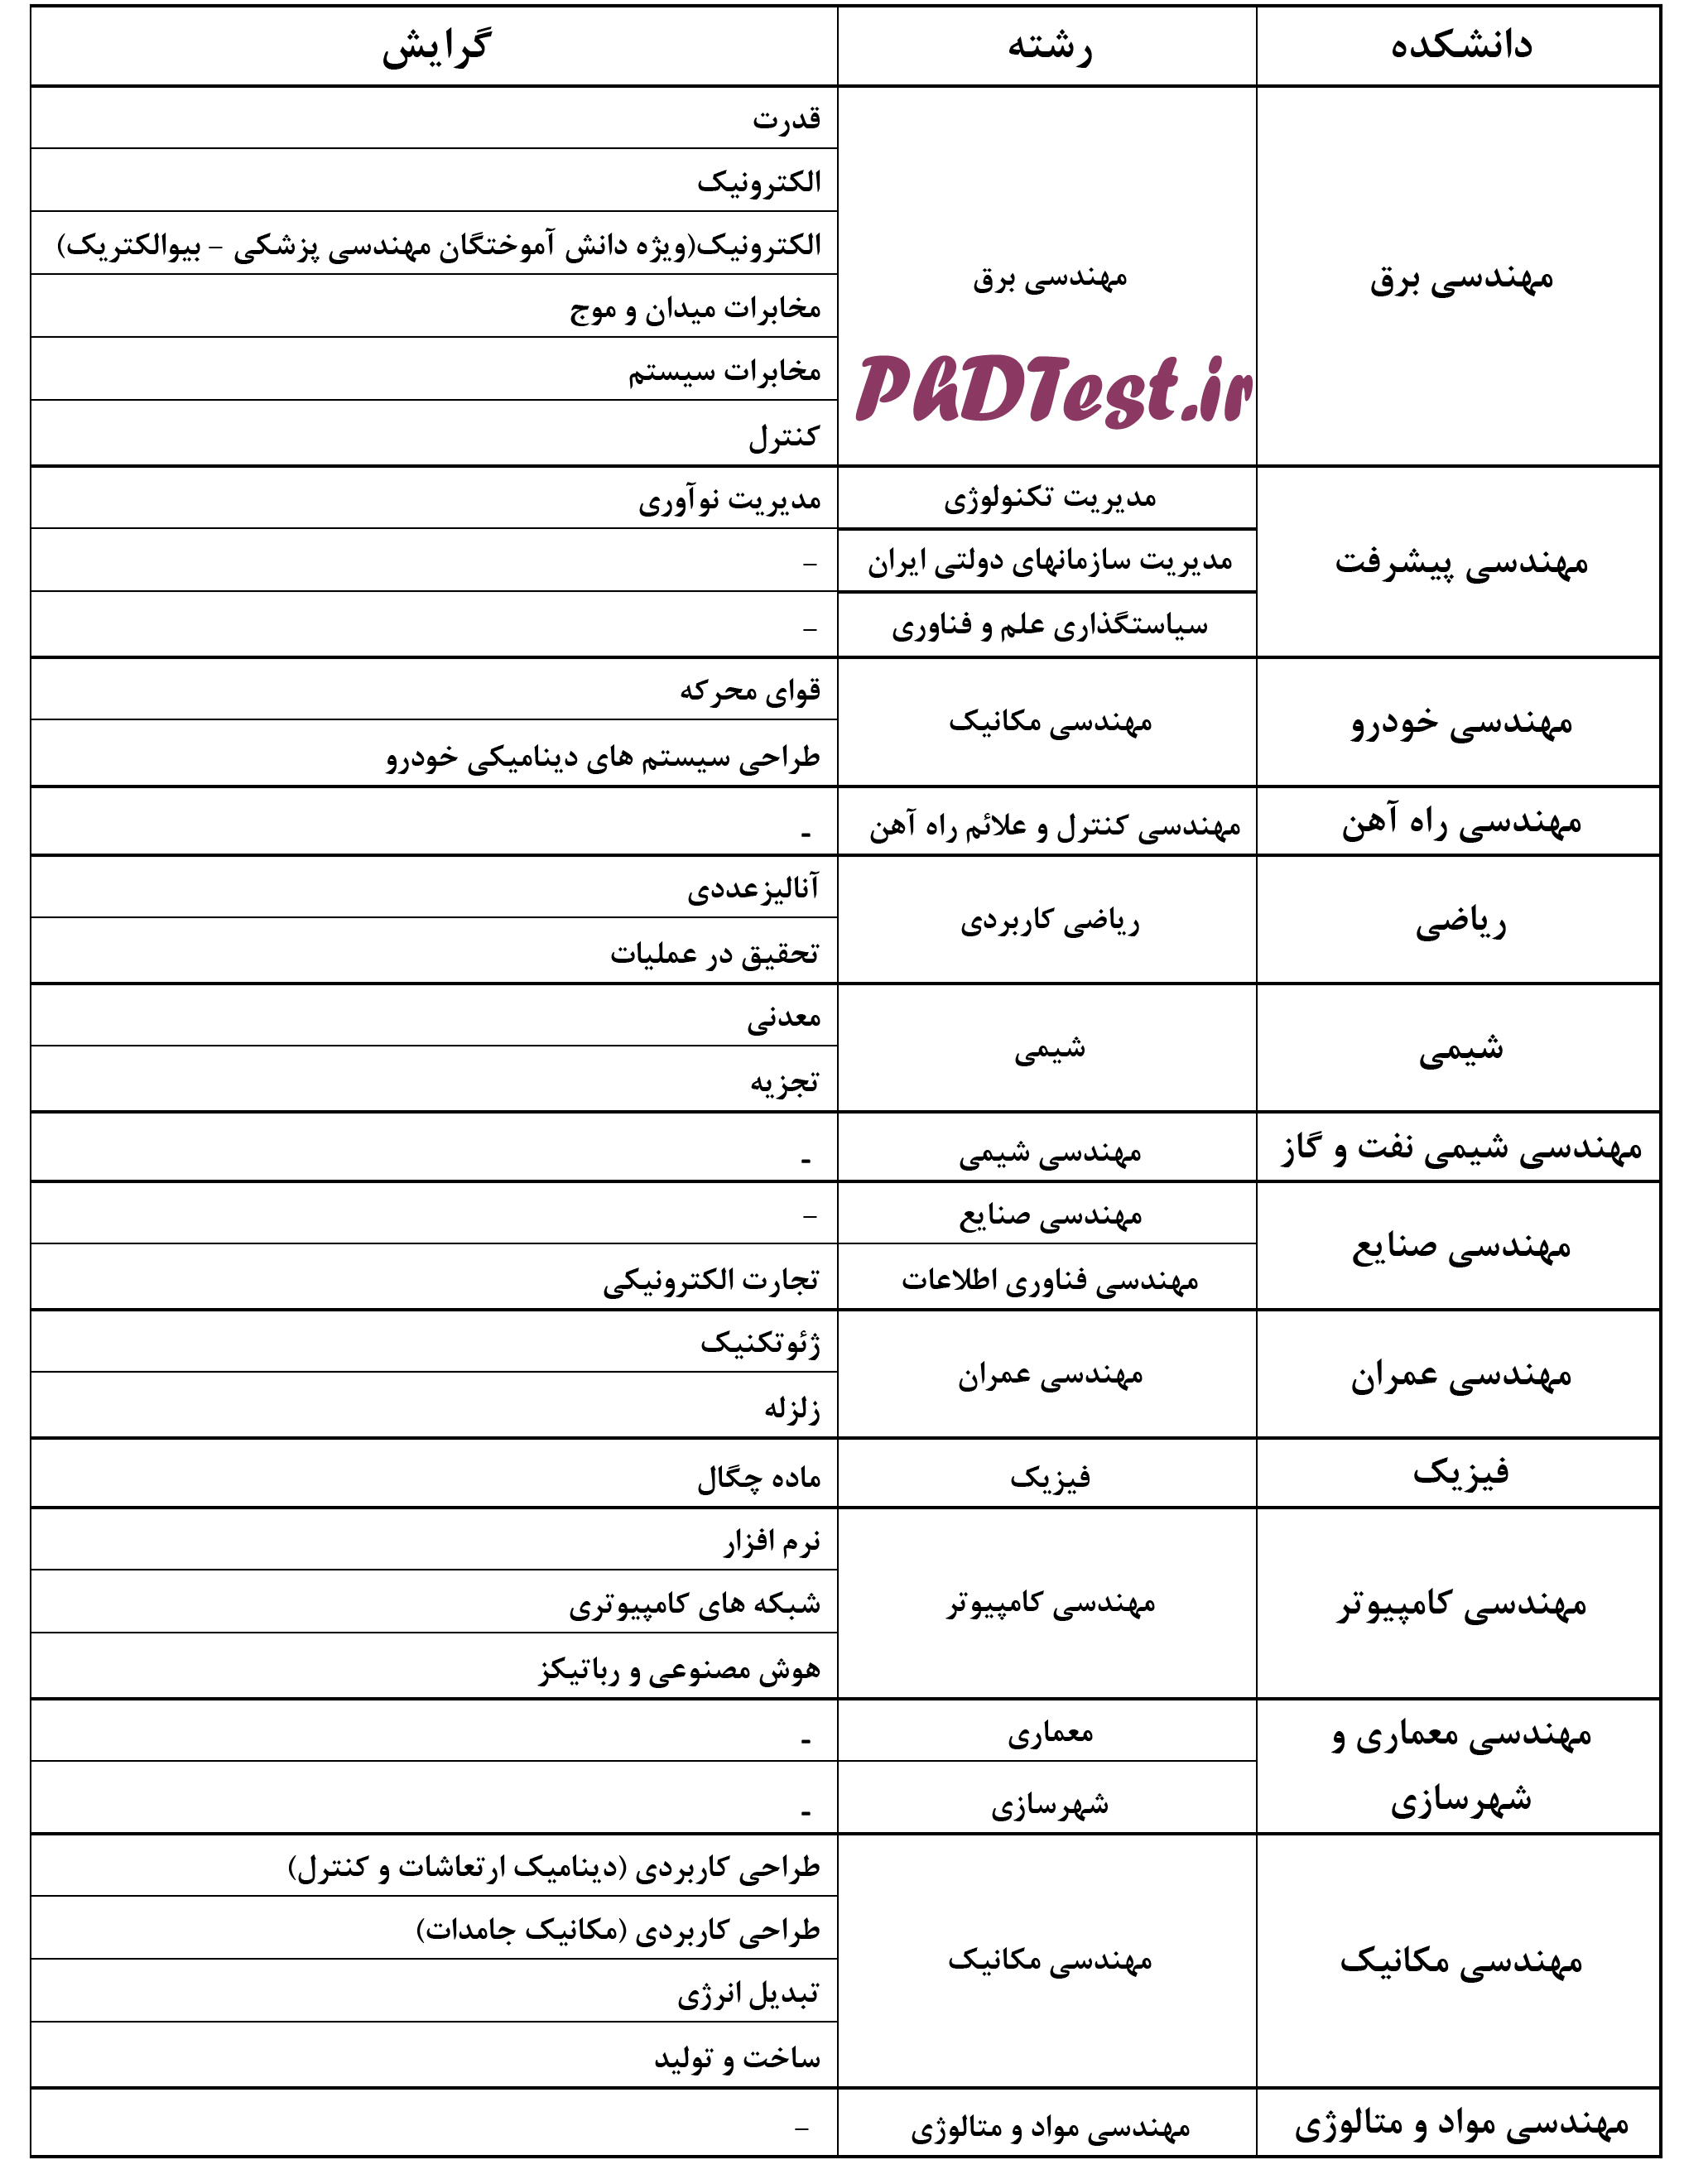 دانشکده رشته گرایش
مهندسی برق مهندسی برق قدرت
الکترونیک
الکترونیک(ویژه دانش آموختگان مهندسی پزشکی – بیوالکتریک)
مخابرات میدان و موج
مخابرات سیستم
کنترل
PhDTest.ir
مهندسی پیشرفت مدیریت تکنولوژی مدیریت نوآوری
مدیریت سازمانهای دولتی ایران –
سیاستگذاری علم و فناوری –
مهندسی خودرو مهندسی مکانیک قوای محرکه
طراحی سیستم های دینامیکی خودرو
مهندسی راه آهن مهندسی کنترل و علائم راه آهن -
ریاضی ریاضی کاربردی آنالیزعددی
تحقیق در عملیات
شیمی شیمی معدنی
تجزیه
مهندسی شیمی نفت و گاز مهندسی شیمی -
مهندسی صنایع مهندسی صنایع –
مهندسی فناوری اطلاعات تجارت الکترونیکی
مهندسی عمران مهندسی عمران ژئوتکنیک
زلزله
فیزیک فیزیک ماده چگال
مهندسی کامپیوتر مهندسی کامپیوتر نرم افزار
شبکه های کامپیوتری
هوش مصنوعی و رباتیکز
مهندسی معماری و معماری -
شهرسازی شهرسازی -
مهندسی مکانیک مهندسی مکانیک طراحی کاربردی (دینامیک ارتعاشات و کنترل)
طراحی کاربردی (مکانیک جامدات)
تبدیل انرژی
ساخت و تولید
مهندسی مواد و متالوژی مهندسی مواد و متالوژی –